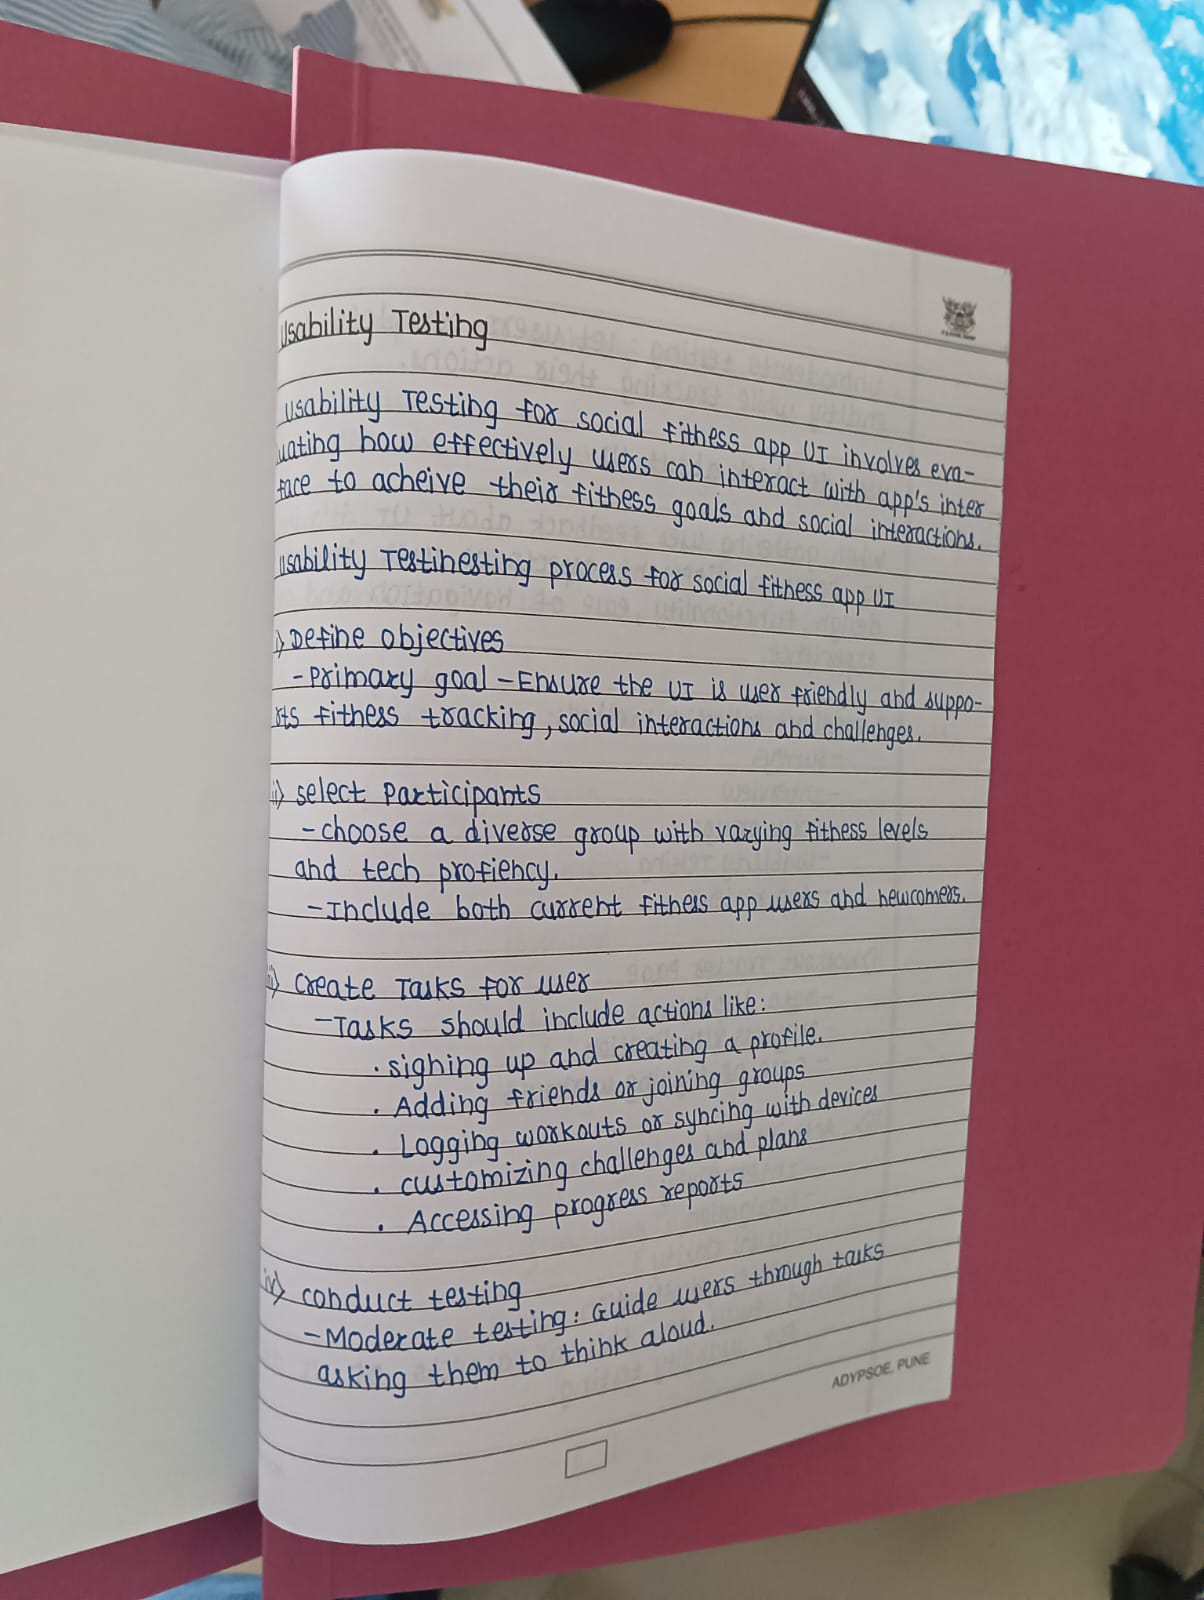 Usability Testing
Usability Testing for social fitness app UI involves eva-
uating how effectively users can interact with app's inter
face to acheive their fitness goals and social interactions.
Usability Testinesting process for social fitness app UI
i) Define objectives
- Primary goal - Ensure the UI is user friendly and suppo-
rts fitness tracking, social interactions and challenges.
ii) select Participants
- choose a diverse group with varying fitness levels
and tech profiency.
- Include both current fitness app users and newcomers.
iii) create Tasks for user
- Tasks should include actions like:
· signing up and creating a profile.
· Adding friends or joining groups
· Logging workouts or syncing with devices
· customizing challenges and plans
· Accessing progress reports
iv) conduct testing
- Moderate testing: Guide users through tasks
asking them to think aloud.
ADYPSOE, PUNE